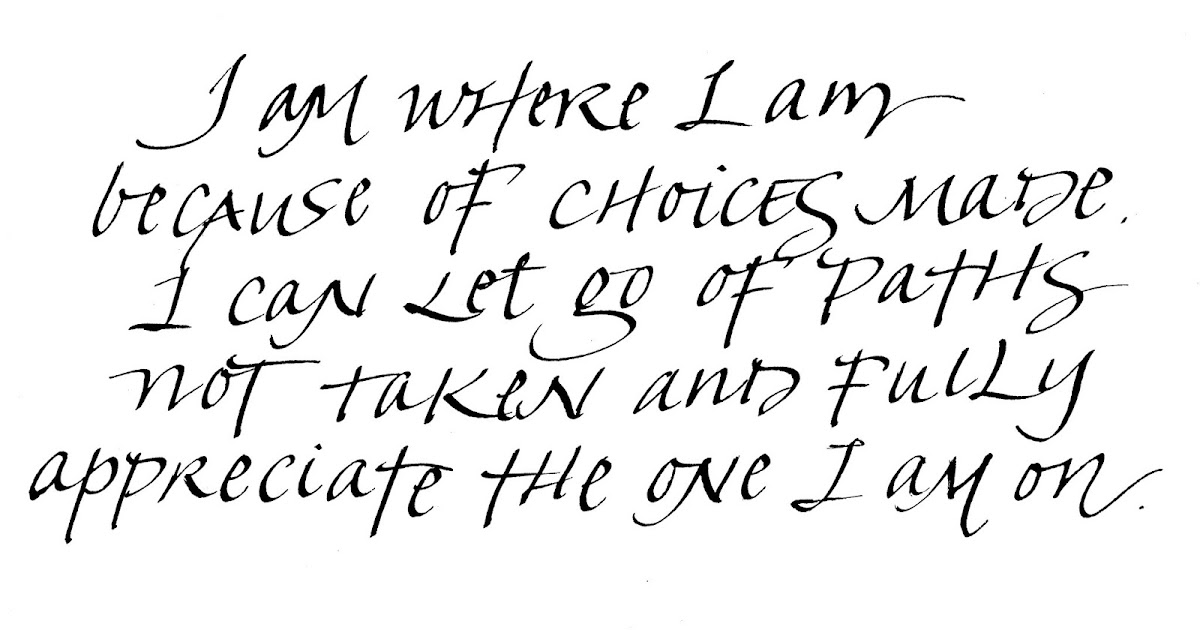 I am where I am
because of choices made.
I can let go of paths
not taken and fully
appreciate the one I am on.